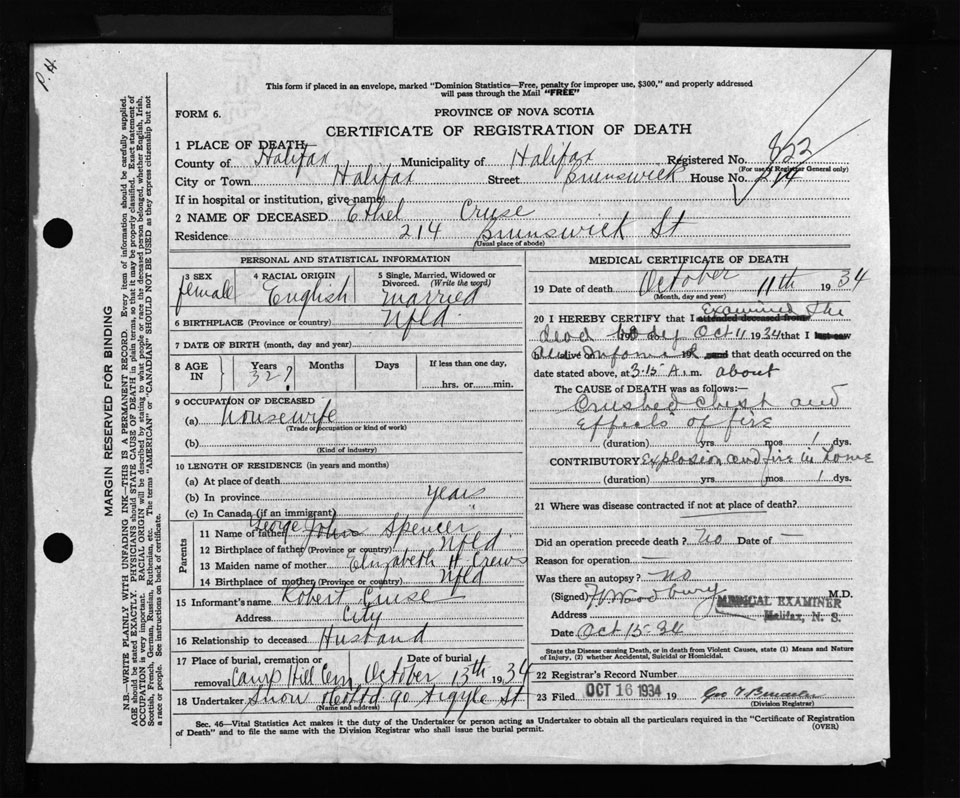 P.H.
This form if placed in an envelope, marked "Dominion Statistics—Free, penalty for improper use, $300," and properly addressed
will pass through the Mail "FREE"
FORM 6.
PROVINCE OF NOVA SCOTIA
CERTIFICATE OF REGISTRATION OF DEATH
1 PLACE OF DEATH,
County of Halifax Municipality of Halifax Registered No. 853
(For use of Registrar General only)
City or Town Halifax Street Brunswick House No. 214
If in hospital or institution, give name
2 NAME OF DECEASED Ethel Cruse
Residence 214 Brunswick St
(Usual place of abode)
PERSONAL AND STATISTICAL INFORMATION
3 SEX female
4 RACIAL ORIGIN English
5 Single, Married, Widowed or Divorced. (Write the word) married
6 BIRTHPLACE (Province or country) Nfld.
7 DATE OF BIRTH (month, day and year)
8 AGE IN Years 32? Months Days If less than one day,
hrs. or min.
9 OCCUPATION OF DECEASED
(a) Housewife
(Trade or occupation or kind of work)
(b)
(Kind of industry)
10 LENGTH OF RESIDENCE (in years and months)
(a) At place of death
(b) In province years
(c) In Canada (if an immigrant)
Parents
11 Name of father George John Spencer
12 Birthplace of father (Province or country) Nfld.
13 Maiden name of mother Elizabeth H Crews
14 Birthplace of mother (Province or country) Nfld
15 Informant's name Robert Cruse
Address City
16 Relationship to deceased Husband
17 Place of burial, cremation or removal Camp Hill Cem. Date of burial October 13th 1934
18 Undertaker Snow 90 Argyle St
(Name and address)
MEDICAL CERTIFICATE OF DEATH
19 Date of death October 11th 1934
(Month, day and year)
20 I HEREBY CERTIFY that I attended deceased from Examined the
dead body Oct 11 1934 that I last saw
alive on informed 19 and that death occurred on the
date stated above, at 3.15 A.m. about
The CAUSE OF DEATH was as follows:—
Crushed chest and
Effects of fire
(duration) yrs mos 1 dys.
CONTRIBUTORY Explosion and fire in home
(duration) yrs. mos 1 dys.
21 Where was disease contracted if not at place of death?
Did an operation precede death? no Date of —
Reason for operation —
Was there an autopsy? no
(Signed) Woodbury M.D.
MEDICAL EXAMINER
Address Halifax, N. S.
Date Oct 15-34
State the Disease causing Death, or in death from Violent Causes, state (1) Means and Nature
of Injury, (2) whether Accidental, Suicidal or Homicidal.
22 Registrar's Record Number
23 Filed OCT 16 1934 19 Geo
(Division Registrar)
Sec. 46—Vital Statistics Act makes it the duty of the Undertaker or person acting as Undertaker to obtain all the particulars required in the "Certificate of Registration
of Death" and to file the same with the Division Registrar who shall issue the burial permit.
(OVER)
MARGIN RESERVED FOR BINDING
N.B.—WRITE PLAINLY WITH UNFADING INK—THIS IS A PERMANENT RECORD. Every item of information should be carefully supplied.
AGE should be stated EXACTLY. PHYSICIANS should STATE CAUSE OF DEATH in plain terms, so that it may be properly classified. Exact statement of
OCCUPATION is very important. RACIAL ORIGIN will be described by stating to what people or race the deceased person belonged, whether English, Irish,
Scottish, French, German, Russian, Ruthenian, etc. The terms "AMERICAN" or "CANADIAN" SHOULD NOT BE USED as they express citizenship but not
a race or people. See instructions on back of certificate.